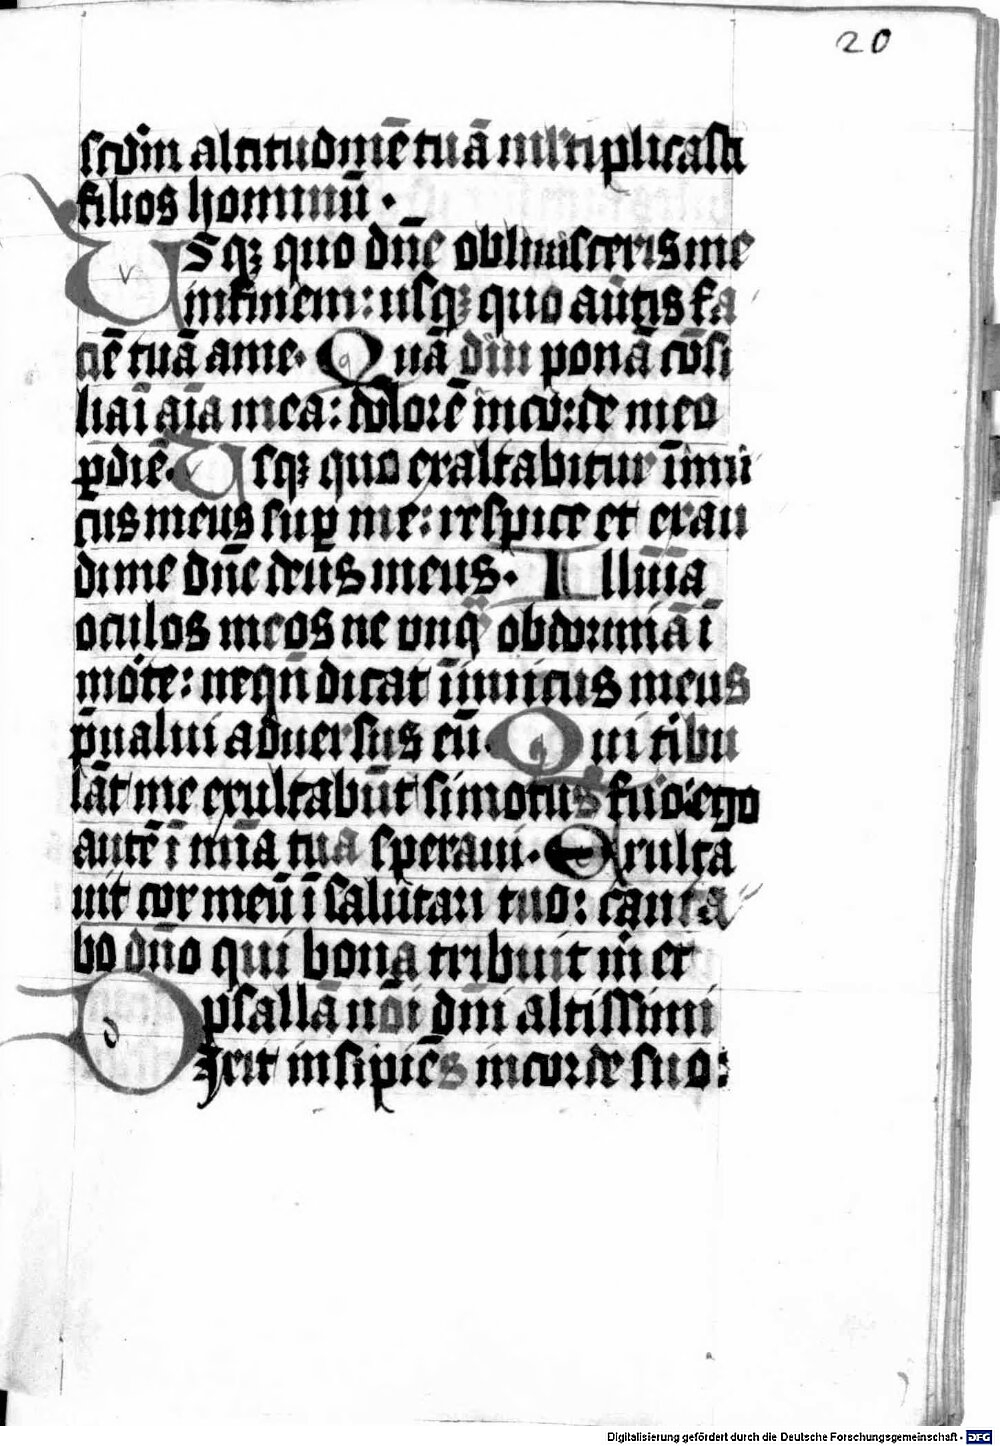 20
scd'm altitudinē tuā m'ltiplicasti
filios hominū .
Vsq₃ quo dn̄e obliuisceris me
in finem: usq₃ quo au'tis fa
ciē tuā a me. Quā diu ponā cōsi
lia ī aīa mea: dolorē in corde meo
p̱ diē. Vsq₃ quo exaltabitur īimi
cus meus sup̱ me: respice et exau
di me dn̄e deus meus. Illūīa
oculos meos ne vnq̄ obdormiā ī
mo'te: neqn̄ dicat īimicus meus
p̄ualui aduersus eū. Qui tibu
lāt me exultabūt si motus fu'o: ego
autē ī mīa tua speraui. Exulta
uit cor meū ī salutari tuo: canta
bo dn̄o qui bona tribuit m' et
psallā nōi dn̄i altissimi
Dixit insipiēs in corde suo:
Digitalisierung gefördert durch die Deutsche Forschungsgemeinschaft - DFG